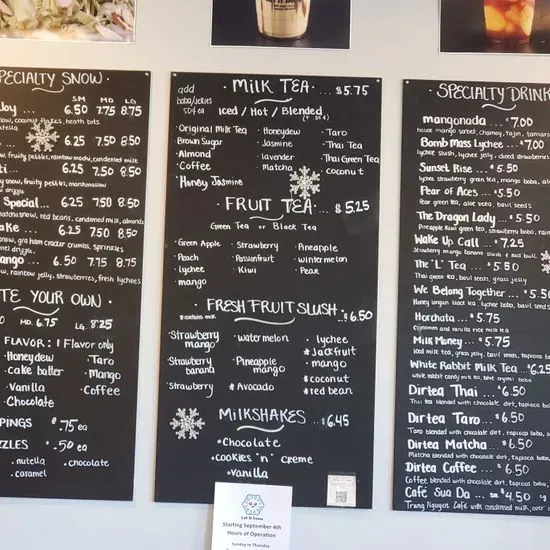 PECIALTY SNOW
SM MD LG
Joy ... 6.50 7.75 8.75
now, coconut flakes, heath bits
nutella
6.25 7.50 8.50
now, fruity pebbles, rainbow mochi, condensed milk
6.25 7.50 8.50
snow, fruity pebbles, marshmallow
Special ... 6.25 7.50 8.50
matcha snow, red beans, condensed milk, almonds
ake ... 6.25 7.50 8.50
snow, graham cracker crumbs, sprinkles
mel drizzle
ango 6.50 7.75 8.75
now, rainbow jelly, strawberries, fresh lychees
TE YOUR OWN
50 MD. 6.75 LG. 8.25
FLAVOR: 1 Flavor only
Honeydew • Taro
Cake batter • Mango
• Vanilla • Coffee
• Chocolate
PINGS $.75 ea
ZZLES $.50 ea
• nutella • chocolate
• caramel
add
boba/jellies
50¢ ea
• MILK TEA ... $5.75
Iced / Hot / Blended
• Original Milk Tea • Honeydew • Taro
• Brown Sugar • Jasmine • Thai Tea
• Almond • lavender • Thai Green Tea
• Coffee • Matcha • coconut
• Honey Jasmine
• FRUIT TEA ... $5.25
Green Tea or Black Tea
• Green Apple • Strawberry • Pineapple
• Peach • Passionfruit • wintermelon
• Lychee • Kiwi • Pear
• mango
• FRESH FRUIT SLUSH ... $6.50
* contains milk
• Strawberry mango • watermelon • lychee
* Jackfruit
• Strawberry banana • Pineapple mango • mango
* coconut
• Strawberry * Avocado * red bean
MILKSHAKES ... $6.45
• Chocolate
• cookies 'n' creme
• Vanilla
• SPECIALTY DRINK
mangonada ... $7.00
house mango sorbet, chamoy, tajin, tamari
Bomb Mass Lychee ... $7.00
lychee slush, lychee jelly, dried strawberries
Sunset Rise ... $5.50
lychee strawberry green tea, mango boba, al
Pear of Aces ... $5.50
Pear green tea, aloe vera, basil seeds
The Dragon Lady ... $5.50
Pineapple Kiwi green tea, strawberry boba, rain
Wake Up Call ... $7.25
Strawberry mango banana slush & red bull
The "L" Tea ... $5.50
Thai green tea, basil seeds, grass jelly
We Belong Together ... $5.50
Honey longan black tea, lychee boba, basil seed
Horchata ... $5.75
Cinnamon and vanilla rice milk tea
Milk Money ... $5.75
Iced milk tea, grass jelly, basil seeds, tapioca b
White Rabbit Milk Tea ... $6.25
white rabbit candy milk tea, blue crystal boba
Dirtea Thai ... $6.50
Thai tea blended with chocolate dirt, tapioca bo
Dirtea Taro ... $6.50
Taro blended with chocolate dirt, tapioca boba,
Dirtea Matcha ... $6.50
Matcha blended with chocolate dirt, tapioca boba,
Dirtea Coffee ... $6.50
Coffee blended with chocolate dirt, tapioca boba,
Café Sua Da ... $4.50
Trung Nguyen Café with condensed milk, over
Let It Snow
Starting September 4th
Hours of Operation
Sunday to Thursday